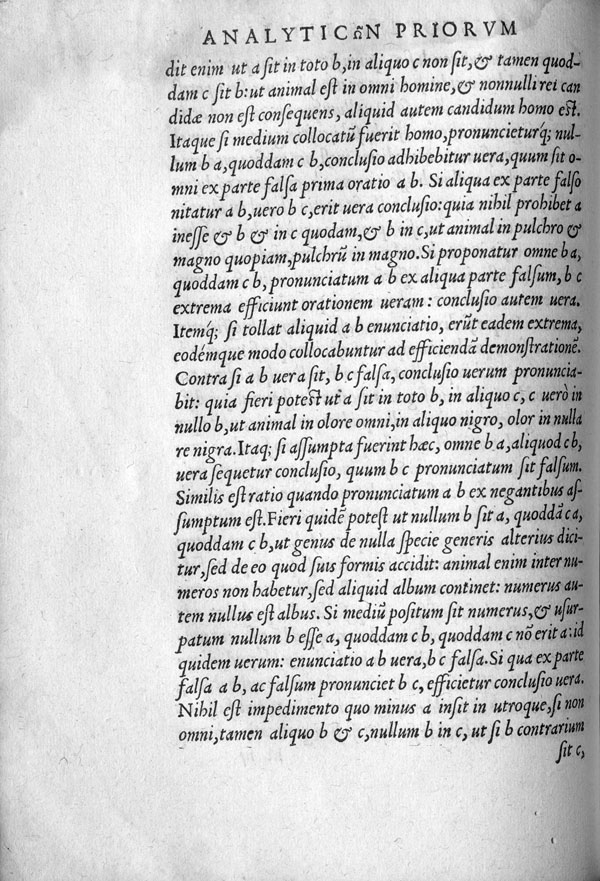 ANALYTICῶN PRIORVM
dit enim ut a ſit in toto b, in aliquo c non ſit, & tamen quod-
dam c ſit b: ut animal eſt in omni homine, & nonnulli rei can
didæ non eſt conſequens, aliquid autem candidum homo eſt.
Itaque ſi medium collocatũ fuerit homo, pronuncieturq; nul-
lum b a, quoddam c b, concluſio adhibebitur uera, quum ſit o-
mni ex parte falſa prima oratio a b. Si aliqua ex parte falſo
nitatur a b, uero b c, erit uera concluſio: quia nihil prohibet a
ineſſe & b & in c quodam, & b in c, ut animal in pulchro &
magno quopiam, pulchrũ in magno. Si proponatur omne b a,
quoddam c b, pronunciatum a b ex aliqua parte falſum, b c
extrema efficiunt orationem ueram: concluſio autem uera.
Itemq́; ſi tollat aliquid a b enunciatio, erũt eadem extrema,
eodémque modo collocabuntur ad efficiendã demonſtrationẽ.
Contra ſi a b uera ſit, b c falſa, concluſio uerum pronuncia-
bit: quia fieri poteſt ut a ſit in toto b, in aliquo c, c uerò in
nullo b, ut animal in olore omni, in aliquo nigro, olor in nulla
re nigra. Itaq; ſi aſſumpta fuerint hæc, omne b a, aliquod c b,
uera ſequetur concluſio, quum b c pronunciatum ſit falſum.
Similis eſt ratio quando pronunciatum a b ex negantibus aſ-
ſumptum eſt. Fieri quidẽ poteſt ut nullum b ſit a, quoddã c a,
quoddam c b, ut genus de nulla ſpecie generis alterius dici-
tur, ſed de eo quod ſuis formis accidit: animal enim inter nu-
meros non habetur, ſed aliquid album continet: numerus au-
tem nullus eſt albus. Si mediũ poſitum ſit numerus, & uſur-
patum nullum b eſſe a, quoddam c b, quoddam c nõ erit a: id
quidem uerum: enunciatio a b uera, b c falſa. Si qua ex parte
falſa a b, ac falſum pronunciet b c, efficietur concluſio uera.
Nihil eſt impedimento quo minus a inſit in utroque, ſi non
omni, tamen aliquo b & c, nullum b in c, ut ſi b contrarium
ſit c,